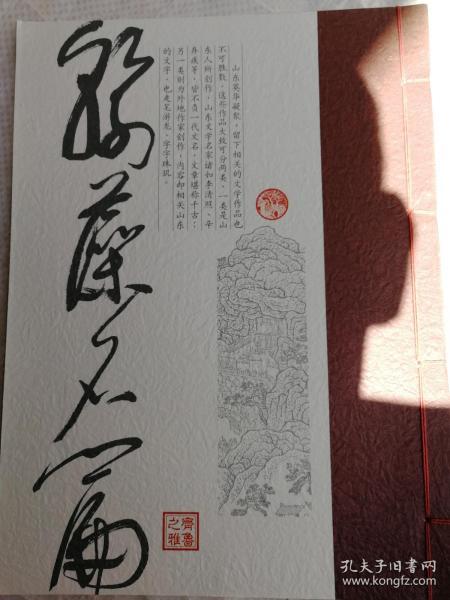 山东英华凝聚，留下相关的文学作品也
不可胜数，这些作品大致可分两类，一类是山
东人所创作，山东文学名家诸如李清照、辛
弃疾等，皆不负一代文名，文章堪称千古；
另一类则为外地作家创作，内容却相关山东
的文字，也走笔游龙，字字珠玑。
藻名篇
齐鲁
之雅
孔夫子旧书网
www.kongfz.com